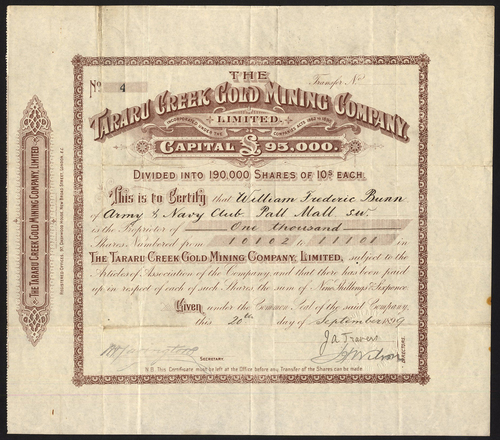 No 4
Transfer No
THE
TARARU CREEK GOLD MINING COMPANY,
INCORPORATED UNDER THE LIMITED. COMPANIES ACTS 1862 TO 1890
CAPITAL £95.000.
DIVIDED INTO 190,000 SHARES OF 10S EACH.
This is to Certify that William Frederic Bunn
of Army & Navy Club Pall Mall. S.W.
is the Proprietor of One thousand
Shares Numbered from 10102 to 11101 in
THE TARARU CREEK GOLD MINING COMPANY, LIMITED, subject to the
Articles of Association of the Company, and that there has been paid
up in respect of each of such Shares the sum of Nine Shillings & Sixpence.
Given under the Common Seal of the said Company,
this 20th day of September 1899
J A Travers
J Wilson
DIRECTORS.
SECRETARY.
N.B. This Certificate must be left at the Office before any Transfer of the Shares can be made
THE TARARU CREEK GOLD MINING COMPANY, LIMITED
REGISTERED OFFICES